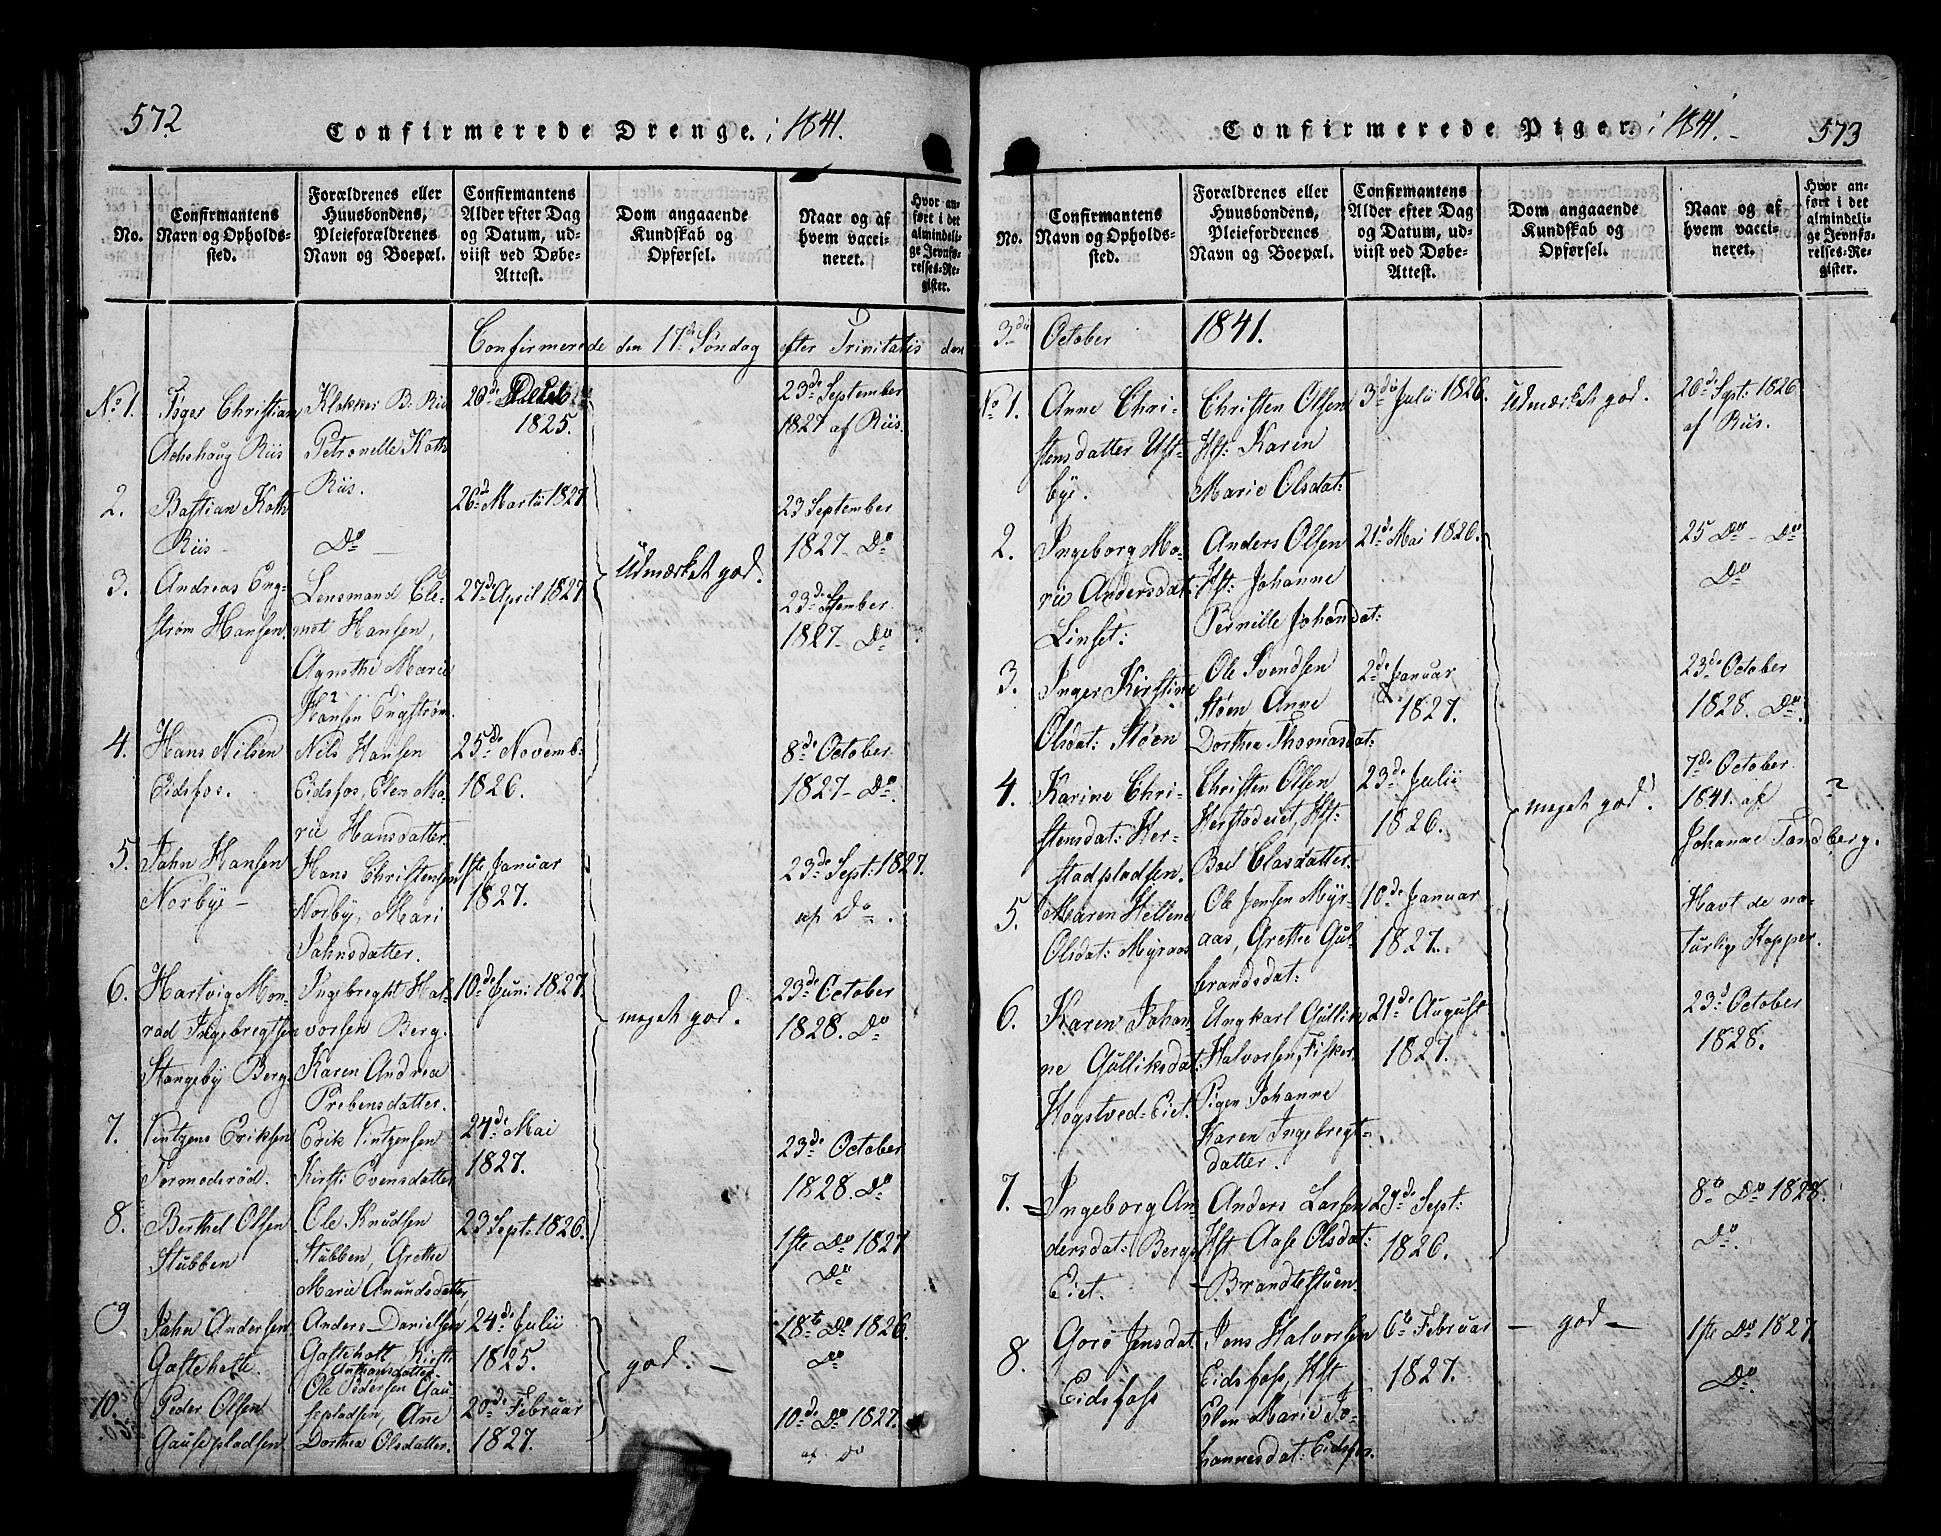 572
Confirmerede Drenge. i 1841.
No.
Confirmantens
Navn og Opholds-
sted.
Forældrenes eller
Huusbondens,
Pleieforældrenes
Navn og Boepæl.
Confirmantens
Alder efter Dag
og Datum, ud-
viist ved Døbe-
Attest.
Dom angaaende
Kundskab og
Opførsel.
Naar og af
hvem vacci-
neret.
Hvor an-
ført i det
almindeli-
ge Jevnfø-
relses-Re-
gister.
Confirmerede den 17de Søndag efter Trinitatis den
No 1.
Christian
Riis
Klokker B. Riis
Petronelle Kath
Riis.
20de
1825.
23de September
1827 af Riis.
2.
Bastian Kath
Riis
Do
26d Martii 1827
23 September
1827 - Do
Udmærket god.
3.
Andreas Eng-
strøm Hansen.
Lensmand Cle-
met Hansen,
Agnethe Marie
Hansen Engstrøm.
27de April 1827
23de
1827 - Do
4.
Hans Nilsen
Eidsfos.
Nils Hansen
Eidsfos, Elen Ma-
rie Hansdatter.
25de Novemb.
1826.
8de October
1827 - Do.
5.
Jahn Hansen
Norbye -
Hans Christensen
Norby, Mari
Jahnsdatter.
1ste Januar
1827.
23de Sept: 1827.
af Do.
6.
Hartvig Mon-
rad Ingebregtsen
Stangeby Berg.
Ingebreght Hal-
vorsen Berg.
Karen Andrea
Prebensdatter.
10de Juni 1827.
meget god.
23de October
1828. Do
7.
Vintzens Eriksen
Tormodsrød.
Erik Vintzensen
Kirsti Evensdatter
24de Mai
1827.
23de October
1828. Do
8.
Berthel Olsen
Stubben
Ole Knudsen
Stubben, Grethe
Marie Amundsdatter,
23 Sept: 1826.
1ste Do 1827
Do
9
Jahn Andersen
Gasteholte.
Anders Danielsen
Gasteholt Kirsti
24de Julii
1825.
god. -
18te Do 1826.
Do
10.
Peder Olsen
Gausepladsen.
Ole Pedersen Gau-
sepladsen, Ane
Dorthea Olsdatter.
20de Februar
1827.
10de Do 1827.
af. Do
Confirmerede Piger. i 1841. -
573
No.
Confirmantens
Navn og Opholds-
sted.
Forældrenes eller
Huusbondens,
Pleiefordrenes
Navn og Boepæl.
Confirmantens
Alder efter Dag
og Datum, ud-
viist ved Døbe-
Attest.
Dom angaaende
Kundskab og
Opførsel.
Naar og af
hvem vacci-
neret.
Hvor an-
ført i det
almindeli-
ge Jevnfø-
relses-Re-
gister.
3die October 1841.
No 1.
Anne Chri-
stensdatter Ust-
bye.
Christen Olsen
Hst: Karen
Marie Olsdat:
3die Julii 1826.
Udmærket god.
20de Sept: 1826
af Riis.
2.
Ingeborg Ma-
rie Andersdat:
Linset:
Anders Olsen
Hst: Johanne
Pernille Johansdat:
21de Mai 1826.
25 Do - Do
Do
3.
Inger Kirstine
Olsdat: Støen
Ole Svendsen
Støen, Anne
Dorthea Thomasdat:
2de Januar
1827.
23de October
1828. Do.
4.
Karine Chri-
stensdat: Her-
stadpladsen.
Christen Olsen
Herstadeiet, Hst:
Boel Clasdatter.
23de Julii
1826.
meget god.
7de October
1841. af
Johanne Tandberg.
5.
Maren Hellene
Olsdat: Myraas
Ole Jensen Myr-
aas, Grethe Gul-
brandsdat:
10de Januar
1827.
Havt de na-
turlige Kopper.
6.
Karen Johan-
ne Gulliksdat:
Hogstved-Eiet.
Ungkarl Gullik
Halvorsen, Fisker
Pigen Johanne
Karen Ingebregt-
datter.
21de August
1827.
23d October
1828.
7.
Ingeborg An-
dersdat: Bergs
Eiet.
Anders Larsen
Hst Aase Olsdat:
Brandtestuen
29de Sept:
1826.
8te Do 1828.
Do.
8.
Goro Jensdat
Eidsfoss
Jens Halvorsen
Eidsfoss, Hst
Elen Marie Jo-
hannesdat: Eidsfos.
6te Februar
1827.
- god -
1ste Do 1827.
Do.